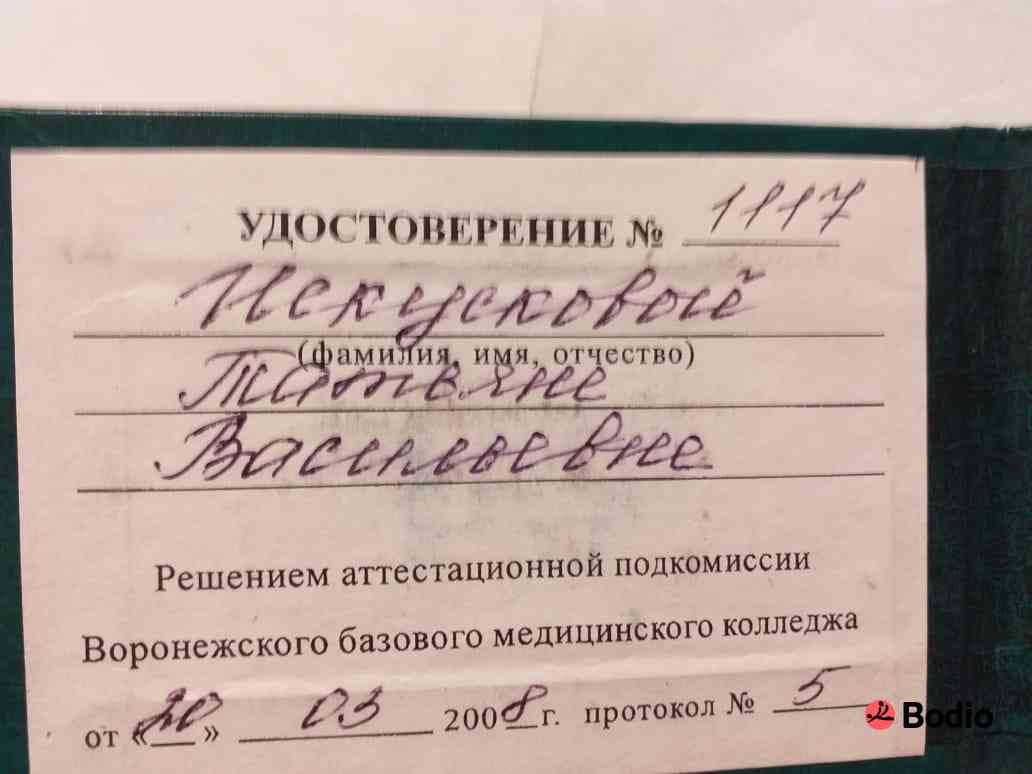 УДОСТОВЕРЕНИЕ № 1117
Искусковой
(фамилия, имя, отчество)
Татьяне
Васильевне
Решением аттестационной подкомиссии
Воронежского базового медицинского колледжа
от «20» 03 2008 г. протокол № 5
Bodio